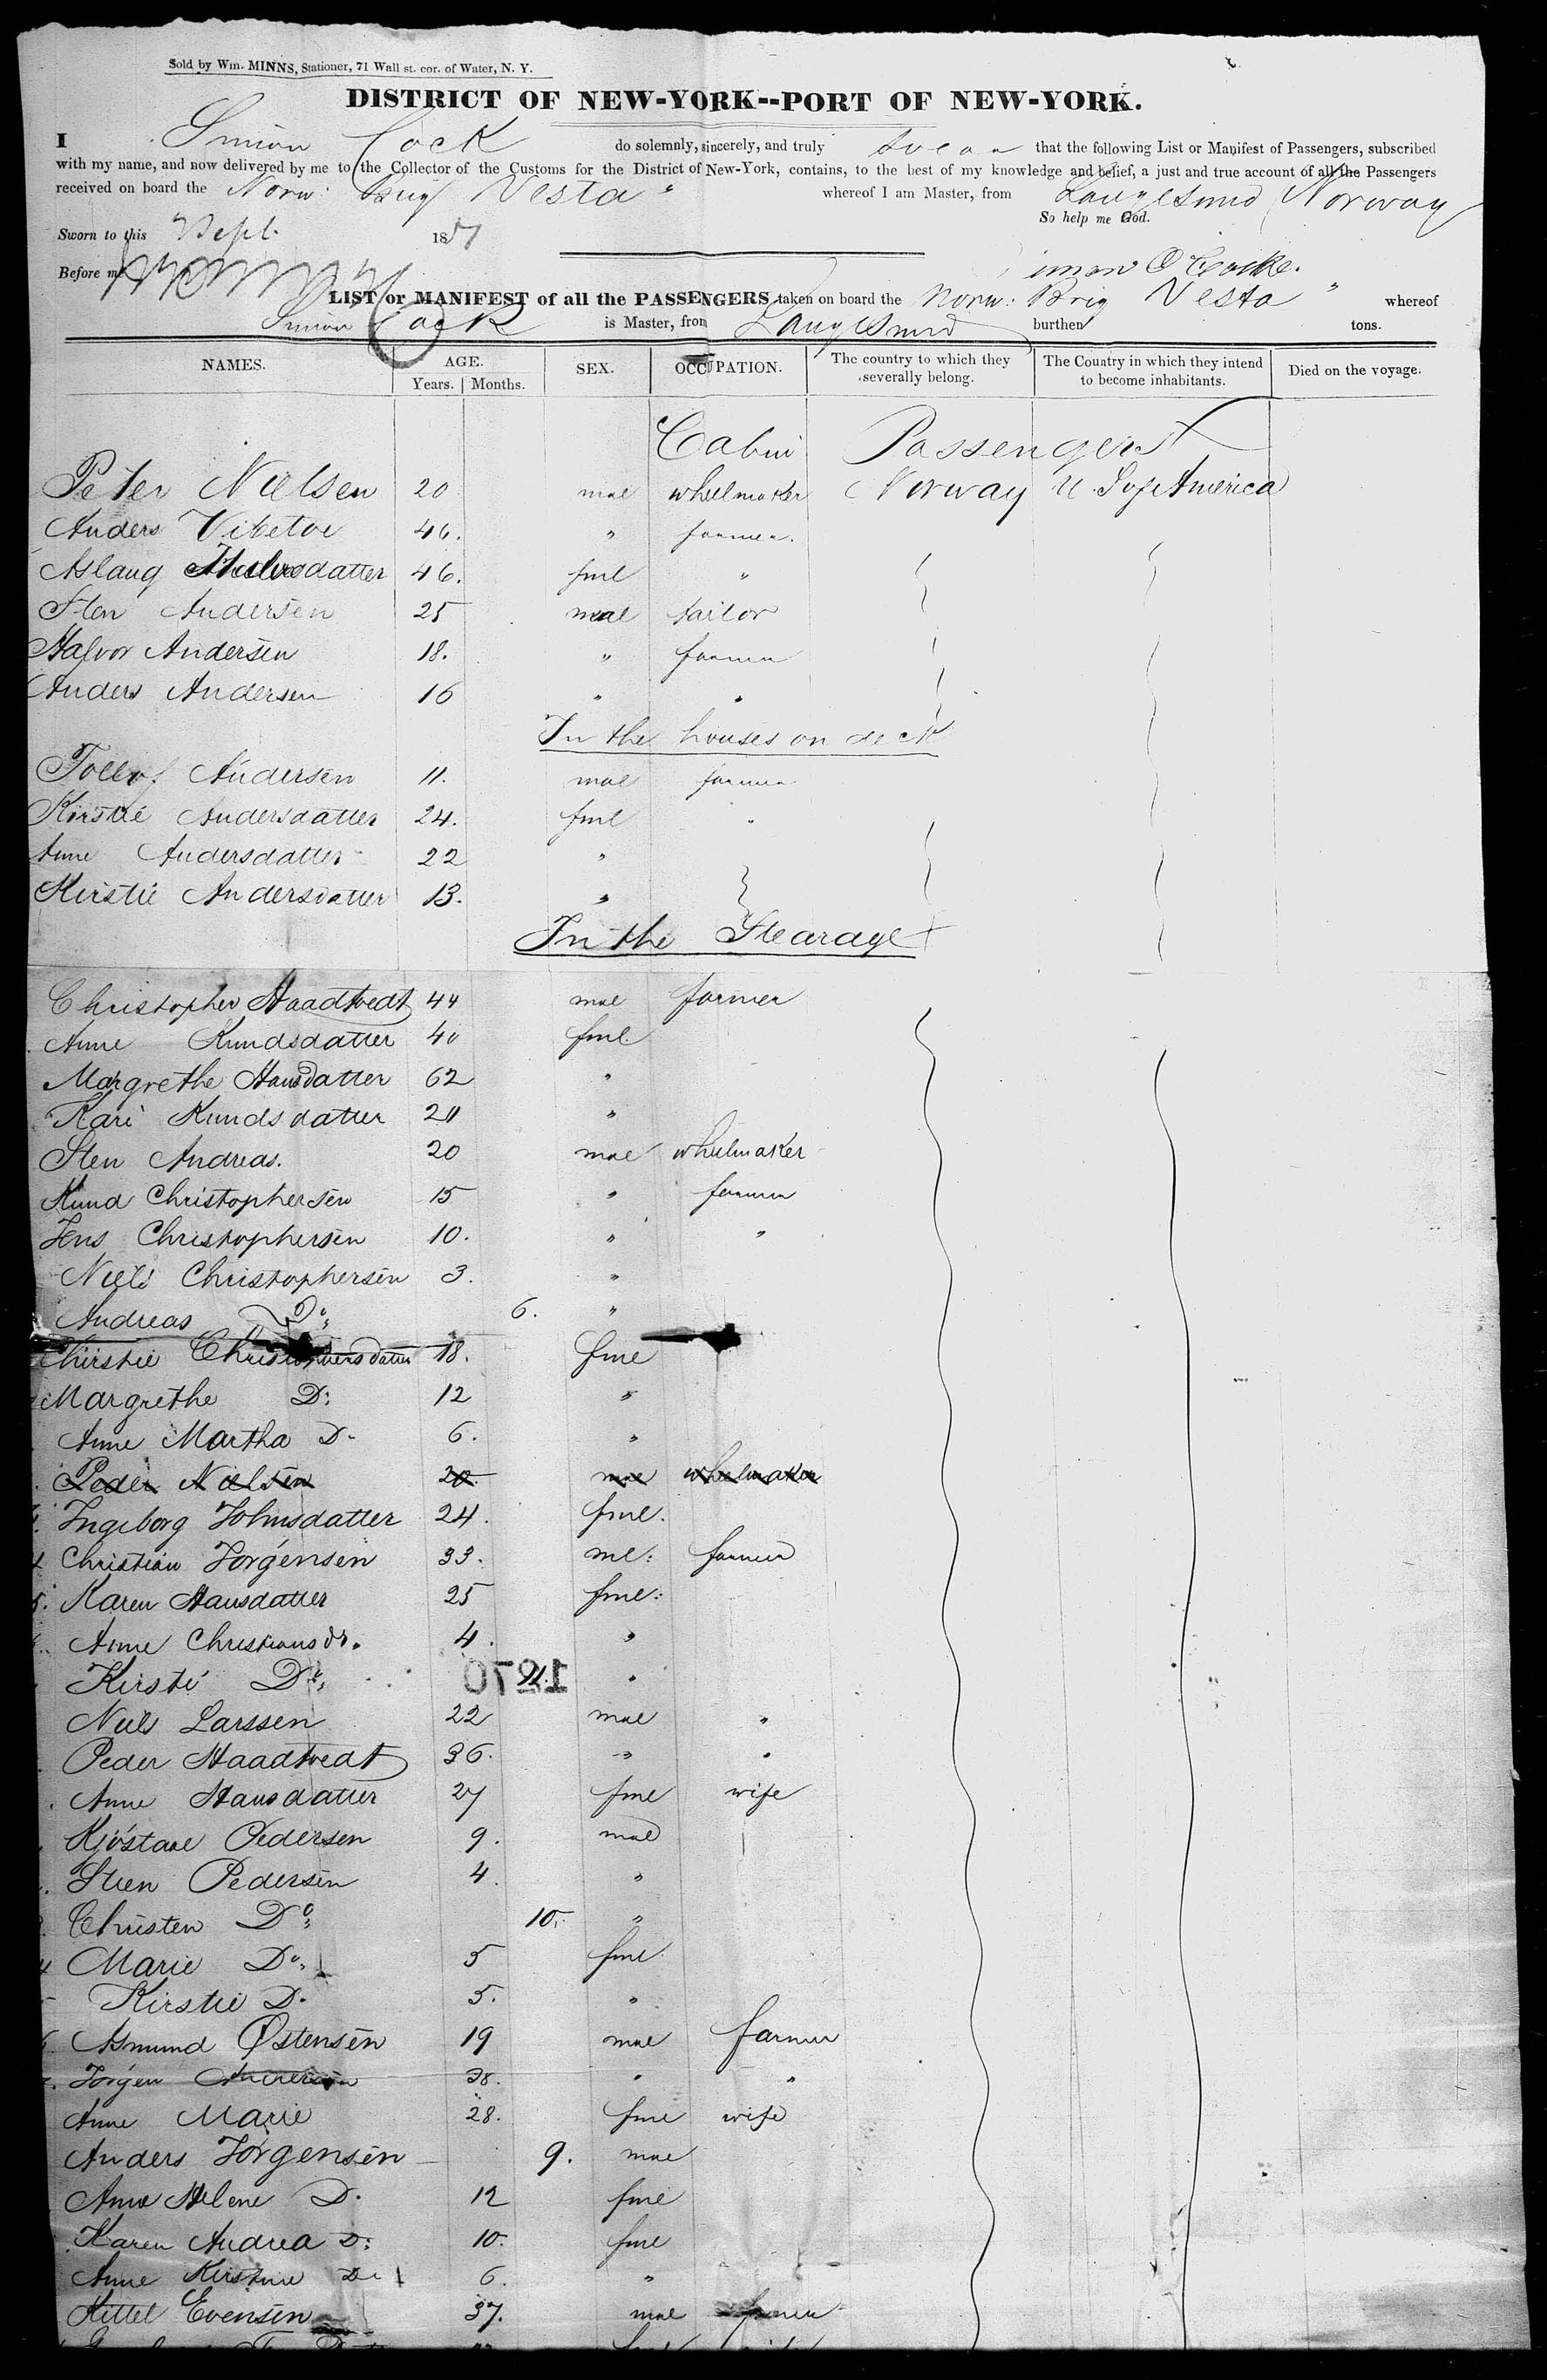 Sold by Wm. MINNS, Stationer, 71 Wall st. cor. of Water, N. Y.
DISTRICT OF NEW-YORK--PORT OF NEW-YORK.
I Simon Cock do solemnly, sincerely, and truly swear that the following List or Manifest of Passengers, subscribed
with my name, and now delivered by me to the Collector of the Customs for the District of New-York, contains, to the best of my knowledge and belief, a just and true account of all the Passengers
received on board the Norw: Brig Vesta " whereof I am Master, from Langesund Norway
So help me God.
Sworn to this Sept. 1851
Before me
LIST or MANIFEST of all the PASSENGERS taken on board the Norw: Brig Vesta " whereof
Simon Cock is Master, from Langesund burthen tons.
NAMES. AGE. Years. Months. SEX. OCCUPATION. The country to which they severally belong. The Country in which they intend to become inhabitants. Died on the voyage.
Cabin Passengers
Peter Nielsen 20 mal whelmaker Norway U. S. of America
Anders Vibetoe 46. " farmer.
Aslaug 46. fml "
Sten Andersen 25 mal tailor
Halvor Andersen 18. " farmer
Anders Andersen 16 " "
In the houses on deck
Tollof Andersen 11. mal farmer
Kirstie Andersdatter 24. fml "
Anne Andersdatter 22 "
Kirstie Andersdatter 13. "
In the Stearage
Christopher Haadtvedt 44 mal farmer
Anne Knudsdatter 40 fml.
Margrethe Hansdatter 62 "
Kari Knudsdatter 20 "
Sten Andreas. 20 mal whelmaker
Knud Christophersen 15 " farmer
Jens Christophersen 10. " "
Niels Christophersen 3. "
Andreas Do: 6. "
Kirstie Christophersdatter 18. fml
Margrethe D: 12 "
Anne Martha D. 6. "
Peder Nielsen 20 mal whelmaker
Ingeborg Johnsdatter 24. fml.
Christian Jorgensen 33. ml: farmer
5. Karen Hansdatter 25 fml:
Anne Christiansdr. 4. "
Kirsti Do: "
Niels Larssen 22 mal "
Peder Haadtvedt 36. " "
Anne Hansdatter 27 fml wife
Kjöstael Pedersen 9. mal
Steen Pedersen 4. "
Christen Do: 10. "
4 Marie Do: 5 fml.
Kirstie D. 5. "
6 Asmund Østensen 19 mal farmer
Jörgen 38. " "
Anne Marie 28. fml wife
Anders Jörgensen 9. mal
Anne Helene D. 12 fml
Karen Andrea D: 10. fml
Anne Kirstine D. 6. "
Kittel Evensen 37. mal farmer